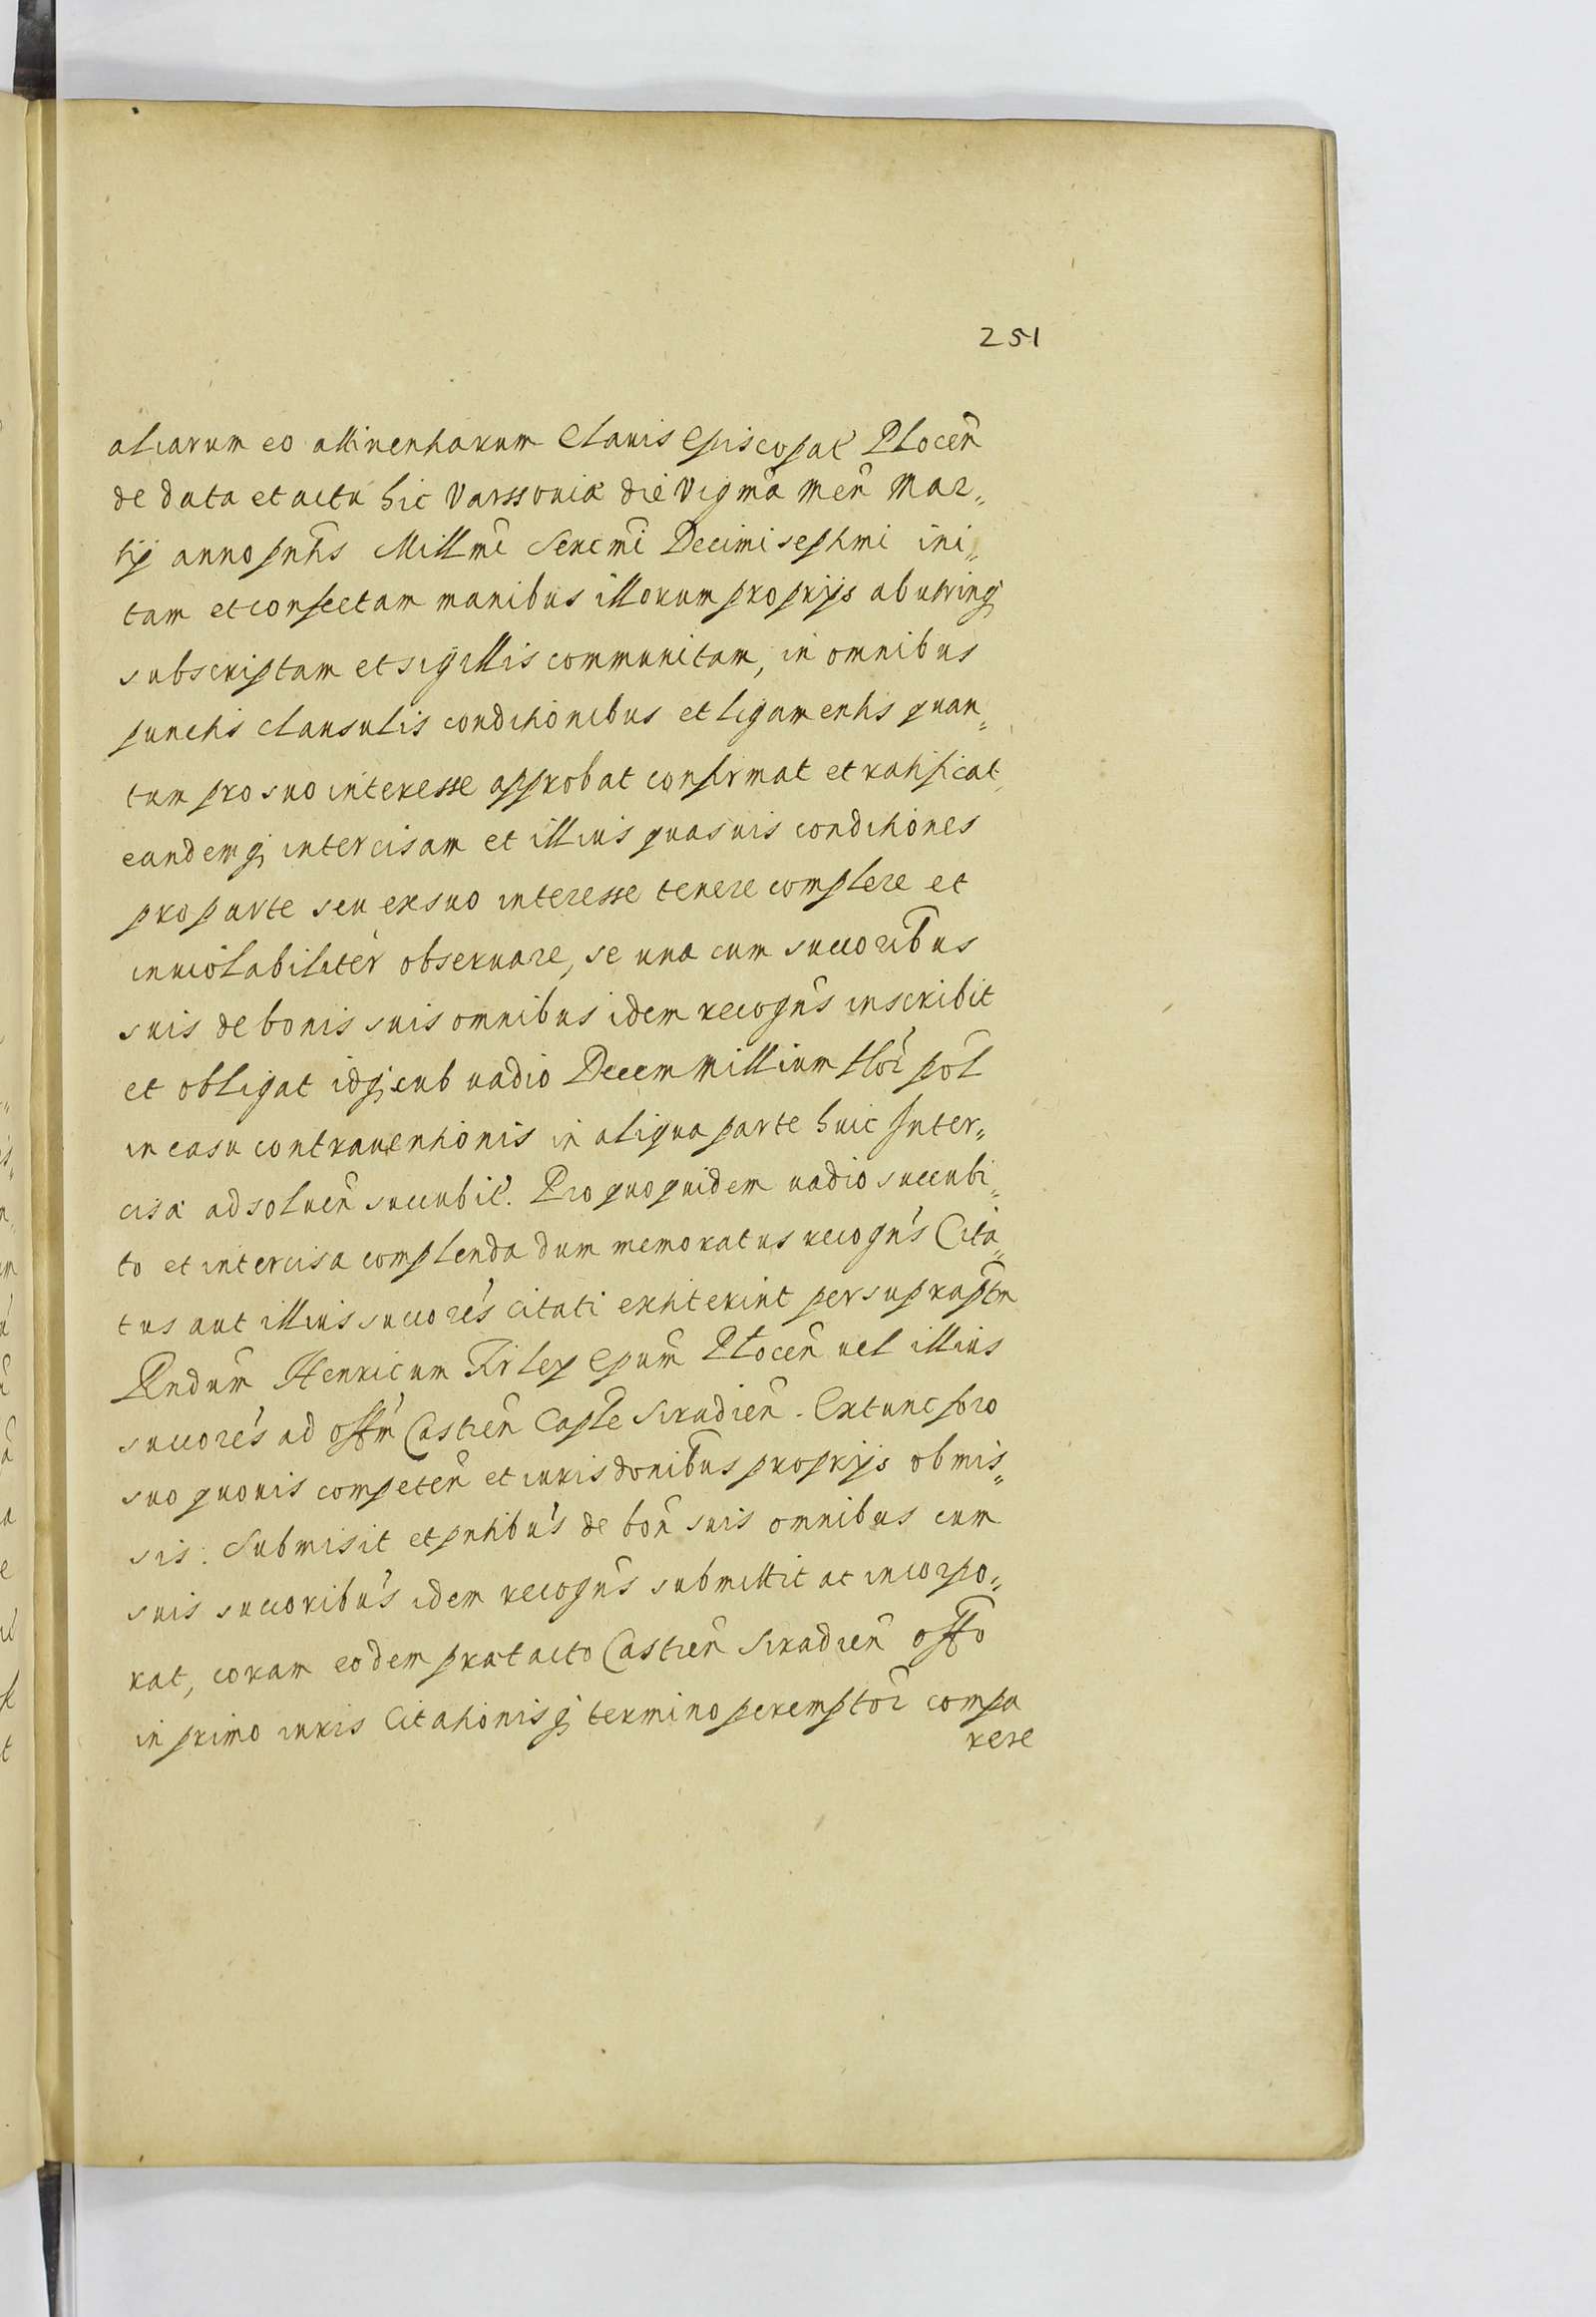 251
aliarum eo attinentiarum Clauis Episcopał Plocen̄
de data et actu hic Varssouiæ die vigm̄a men̄ Mar„
tij anno pn̄tis Millm̄i Sexcm̄i Decimi septimi ini„
tam et confectam manibus illorum proprijs ab utrinq;
subscriptam et sigillis communitam, in omnibus
punctis clausulis conditionibus et ligamentis quan„
tum pro suo interesse approbat confirmat et ratificat,
eandemq; intercisam et illius quasuis conditiones
pro parte seu ex suo interesse tenere complere et
inuiolabiliter obseruare, se una cum succoribus
suis de bonis suis omnibus idem recogn̄s inscribit
et obligat idq; sub uadio Decem Millium flor̄ pol
in casu contrauentionis in aliqua parte huic Inter„
cisæ ad soluen̄ succubił. Pro quo quidem uadio succubi„
to et intercisa complenda dum memoratus recogn̄s Cita„
tus aut illius succores citati extiterint per supraptm̄
Rndum̄ Henricum Firley Epum̄ Plocen̄ uel illius
succores ad offm̄ Castren̄ Capłe Siradien̄. Extunc foro
suo quouis competen̄ et iurisdonibus proprijs obmis„
sis. Submisit et pn̄tibus de bon̄ suis omnibus cum
suis succoribus idem recogn̄s submittit ac incorpo„
rat, coram eodem prætacto Castren̄ Siradien̄ offo
in primo iuris Citationisq; termino peremptor̄ compa
rere